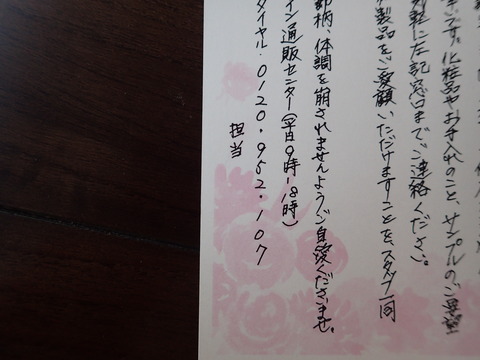 ます。化粧品やお手入れのこと、サンプルのご要望
気軽に左記窓口までご連絡ください。
製品をご愛顧いただけますことを、スタッフ一同
節柄、体調を崩されませんようご自愛くださいませ。
イン通販センター(平日9時-18時)
ダイヤル・0120・952・107
担当